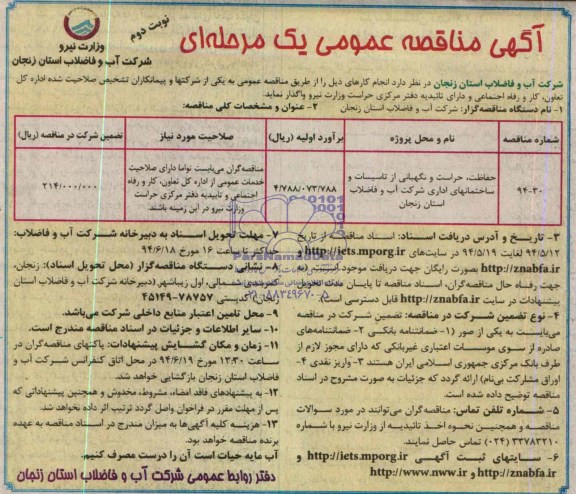 نوبت دوم
وزارت نیرو
شرکت آب و فاضلاب استان زنجان
آگهی مناقصه عمومی یک مرحله‌ای
شرکت آب و فاضلاب استان زنجان در نظر دارد انجام کارهای ذیل را از طریق مناقصه عمومی به یکی از شرکتها و پیمانکاران تشخیص صلاحیت شده اداره کل
تعاون، کار و رفاه اجتماعی و دارای تائیدیه دفتر مرکزی حراست وزارت نیرو واگذار نماید.
۱- نام دستگاه مناقصه‌گزار: شرکت آب و فاضلاب استان زنجان ۲- عنوان و مشخصات کلی مناقصه:
شماره مناقصه
نام و محل پروژه
برآورد اولیه (ریال)
صلاحیت مورد نیاز
تضمین شرکت در مناقصه (ریال)
۹۴-۳۰
حفاظت، حراست و نگهبانی از تاسیسات و
ساختمانهای اداری شرکت آب و فاضلاب
استان زنجان
۴/۷۸۸/۰۷۳/۷۸۸
مناقصه‌گران می‌بایست تواما دارای صلاحیت
خدمات عمومی از اداره کل تعاون، کار و رفاه
اجتماعی و تاییدیه دفتر مرکزی حراست
وزارت نیرو در این زمینه باشند
۲۱۴/۰۰۰/۰۰۰
۳- تاریخ و آدرس دریافت اسناد: اسناد مناقصه از تاریخ
۹۴/۵/۱۲ لغایت ۹۴/۵/۱۹ در سایت‌های http://iets.mporg.ir و
http://znabfa.ir بصورت رایگان جهت دریافت موجود است (به
جهت رفاه حال مناقصه‌گران، اسناد مناقصه تا پایان مدت تحویل
پیشنهادات در سایت http://znabfa.ir قابل دسترسی است).
۴- نوع تضمین شرکت در مناقصه: تضمین شرکت در مناقصه
می‌بایست به یکی از صور (۱- ضمانتنامه بانکی ۲- ضمانتنامه‌های
صادره از سوی موسسات اعتباری غیربانکی که دارای مجوز لازم از
طرف بانک مرکزی جمهوری اسلامی ایران هستند ۳- واریز نقدی ۴-
اوراق مشارکت بی‌نام) ارائه گردد که جزئیات به صورت مشروح در اسناد
مناقصه توضیح داده شده است.
۵- شماره تلفن تماس: مناقصه‌گران می‌توانند در مورد سوالات
مناقصه و همچنین نحوه اخذ تائیدیه از وزارت نیرو با شماره
۳۳۷۸۳۲۱۰ (۰۲۴) تماس حاصل نمایند.
۶- سایتهای ثبت آگهی http://iets.mporg.ir و
http://znabfa.ir و http://www.nww.ir
۷- مهلت تحویل اسناد به دبیرخانه شرکت آب و فاضلاب:
حداکثر تا ساعت ۱۶ مورخ ۹۴/۶/۱۸
۸- نشانی دستگاه مناقصه‌گزار (محل تحویل اسناد): زنجان،
کمربندی شمالی، اول زیباشهر (دبیرخانه شرکت آب و فاضلاب استان
زنجان) کدپستی ۷۸۷۵۷-۴۵۱۴۹
۹- محل تامین اعتبار منابع داخلی شرکت می‌باشد.
۱۰- سایر اطلاعات و جزئیات در اسناد مناقصه مندرج است.
۱۱- زمان و مکان گشایش پیشنهادات: پاکتهای مناقصه‌گران در
ساعت ۱۳:۳۰ مورخ ۹۴/۶/۱۹ در محل اتاق کنفرانس شرکت آب و
فاضلاب استان زنجان بازگشایی خواهد شد.
۱۲- به پیشنهادهای فاقد امضاء، مشروط، مخدوش و همچنین پیشنهاداتی که
پس از مهلت مقرر در فراخوان واصل گردد ترتیب اثر داده نخواهد شد.
۱۳- هزینه کلیه آگهی‌ها به میزان مندرج در اسناد مناقصه به عهده
برنده مناقصه خواهد بود.
آب مایه حیات است آن را درست مصرف کنیم.
دفتر روابط عمومی شرکت آب و فاضلاب استان زنجان
ParsNamadData
۰۲۱-۸۸۳۴۹۶۷۰-۵